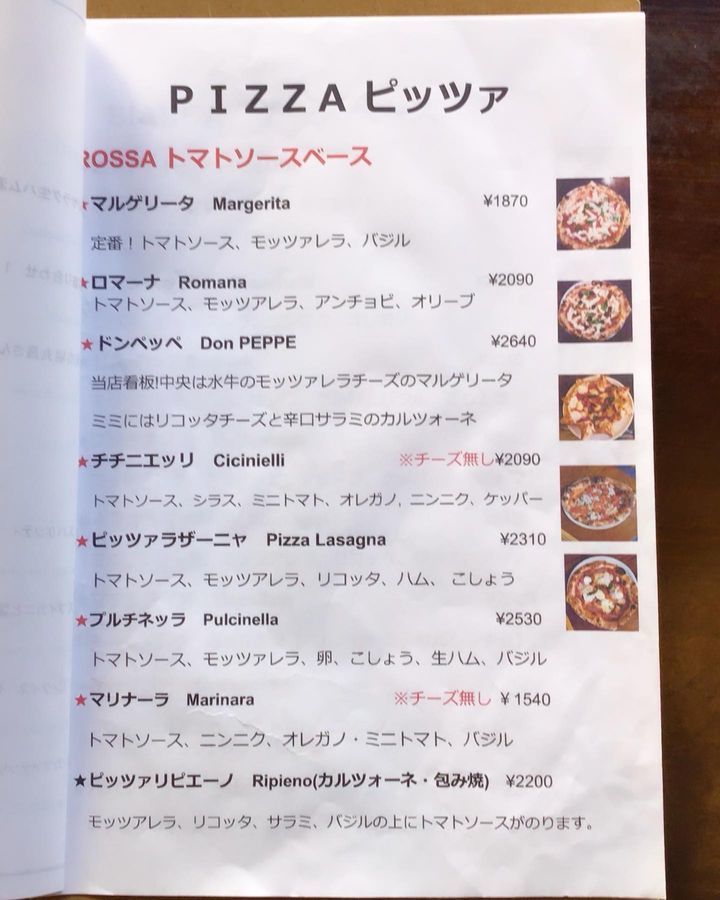 PIZZA ピッツァ
ROSSA トマトソースベース
★マルゲリータ Margerita ¥1870
定番！トマトソース、モッツァレラ、バジル
★ロマーナ Romana ¥2090
トマトソース、モッツアレラ、アンチョビ、オリーブ
★ドンペッペ Don PEPPE ¥2640
当店看板!中央は水牛のモッツァレラチーズのマルゲリータ
ミミにはリコッタチーズと辛口サラミのカルツォーネ
★チチニエッリ Cicinielli ※チーズ無し¥2090
トマトソース、シラス、ミニトマト、オレガノ, ニンニク、ケッパー
★ピッツァラザーニャ Pizza Lasagna ¥2310
トマトソース、モッツアレラ、リコッタ、ハム、 こしょう
★プルチネッラ Pulcinella ¥2530
トマトソース、モッツァレラ、卵、こしょう、生ハム、バジル
★マリナーラ Marinara ※チーズ無し ¥1540
トマトソース、ニンニク、オレガノ・ミニトマト、バジル
★ピッツァリピエーノ Ripieno(カルツォーネ・包み焼) ¥2200
モッツアレラ、リコッタ、サラミ、バジルの上にトマトソースがのります。